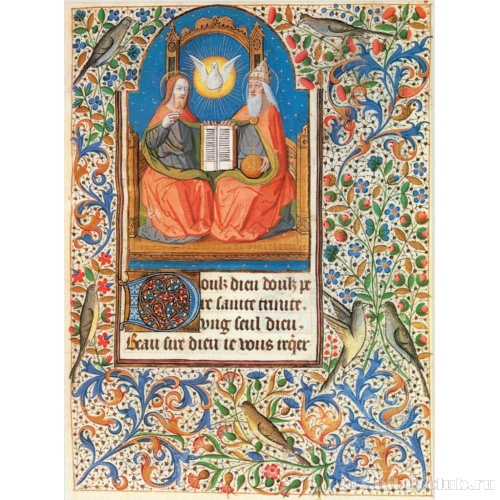 Doulz dieu doulz pe
re sainte trinite.
ung seul dieu.
Beau sire dieu ie vous reqer